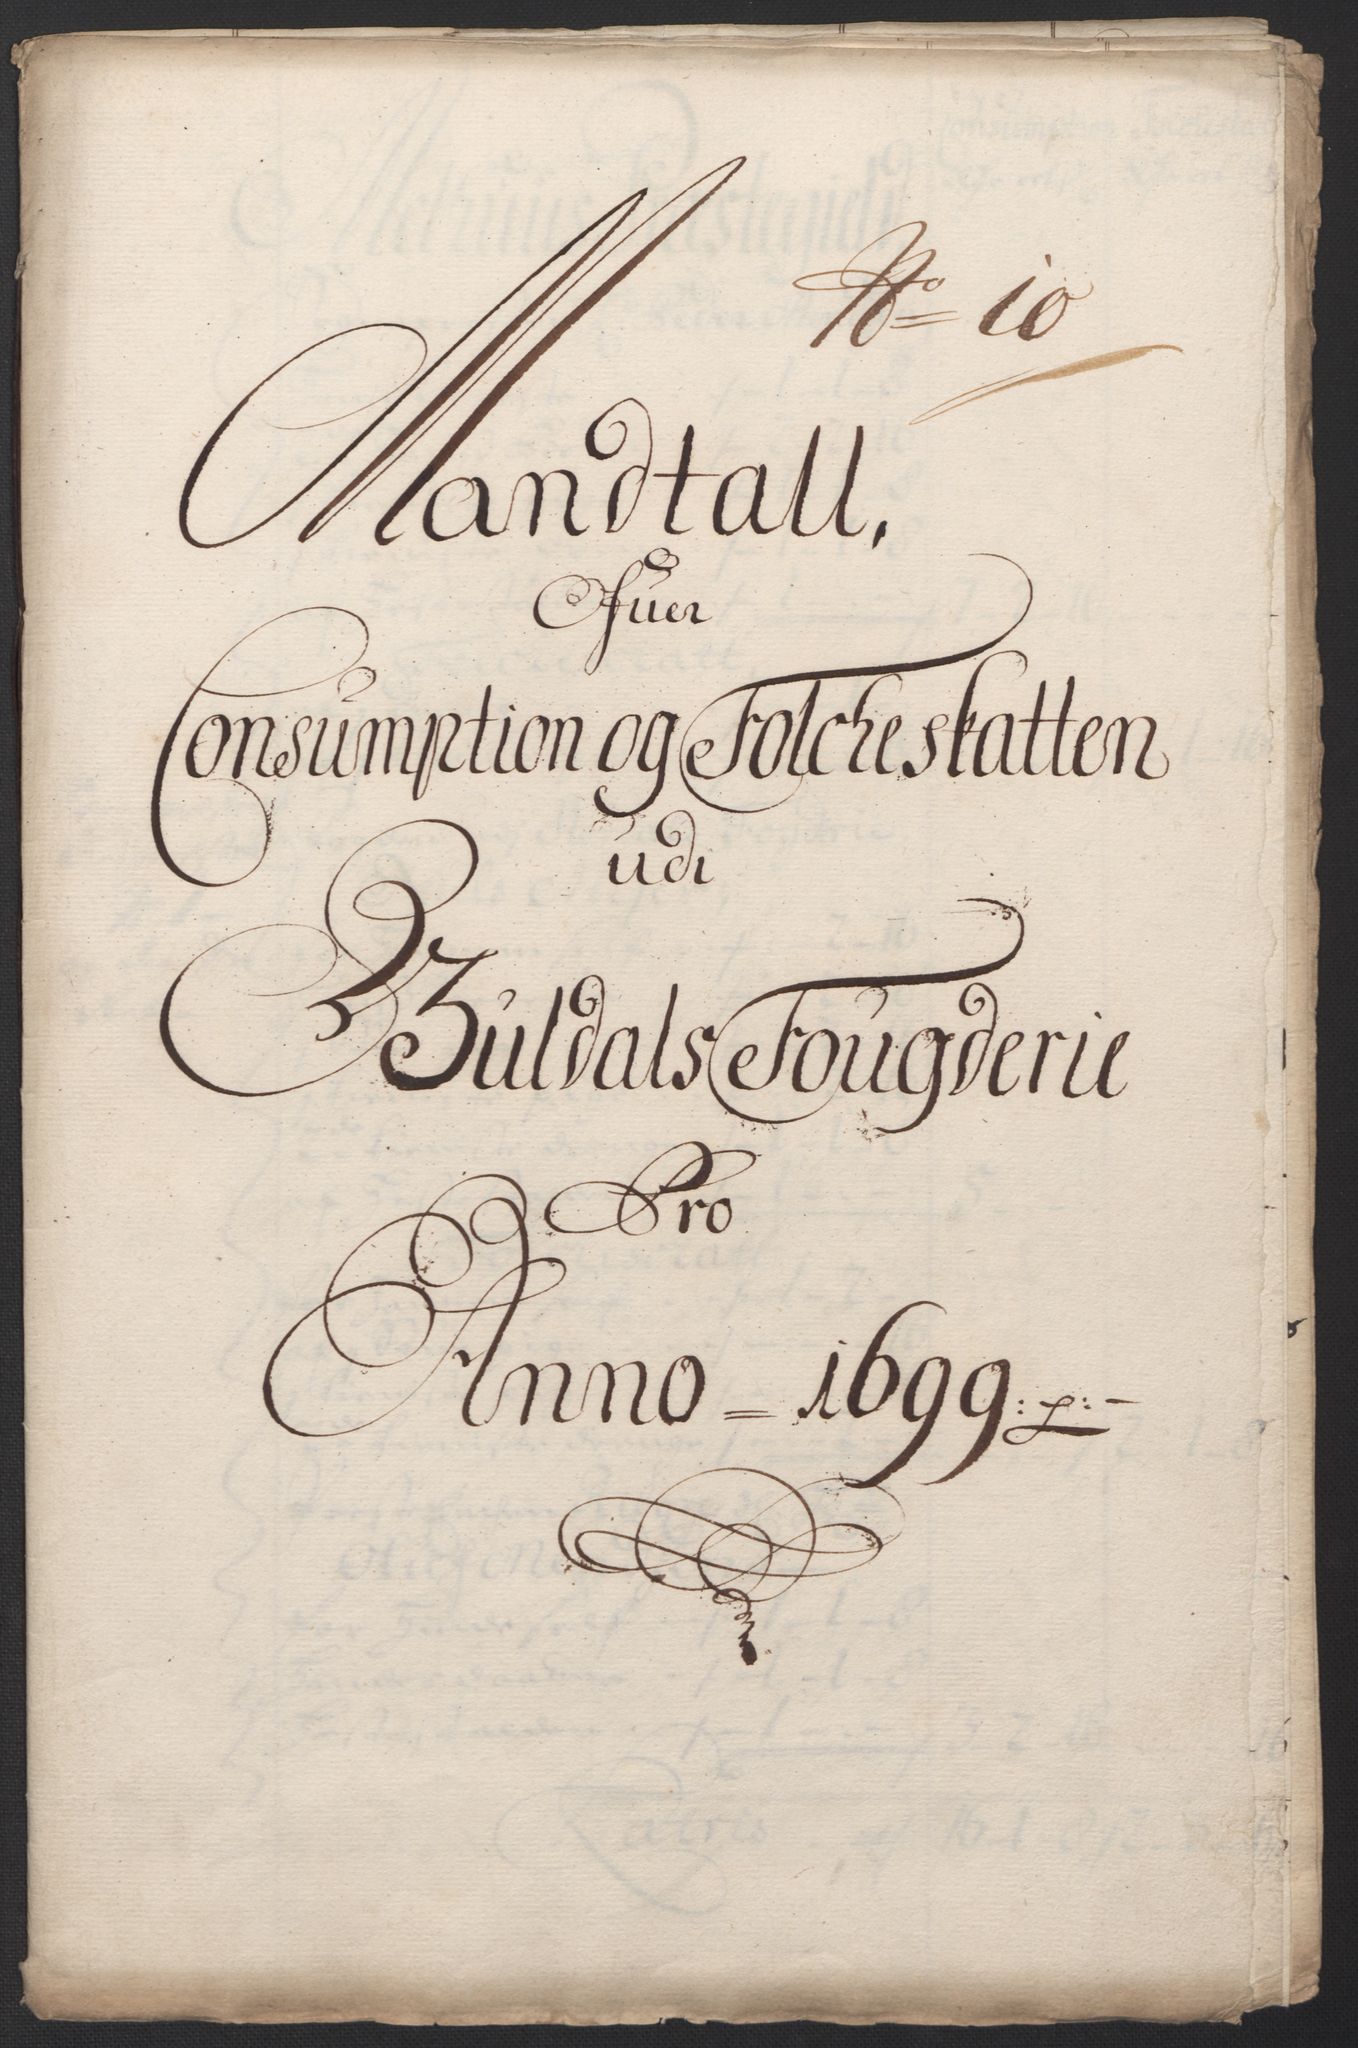 No 10
Mandtall,
Ofuer
Consumption og Folcheskatten
udi
Guldals Fougderie
Pro
Anno = 1699